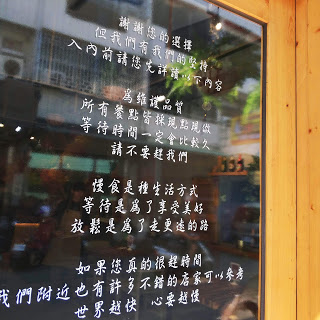 謝謝您的選擇
但我們有我們的堅持
入內前請您先詳讀以下內容
為維護品質
所有餐點皆採現點現做
等待時間一定會比較久
請不要趕我們
慢食是種生活方式
等待是為了享受美好
放鬆是為了走更遠的路
如果您真的很趕時間
我們附近也有許多不錯的店家可以參考
世界越快 心要越慢